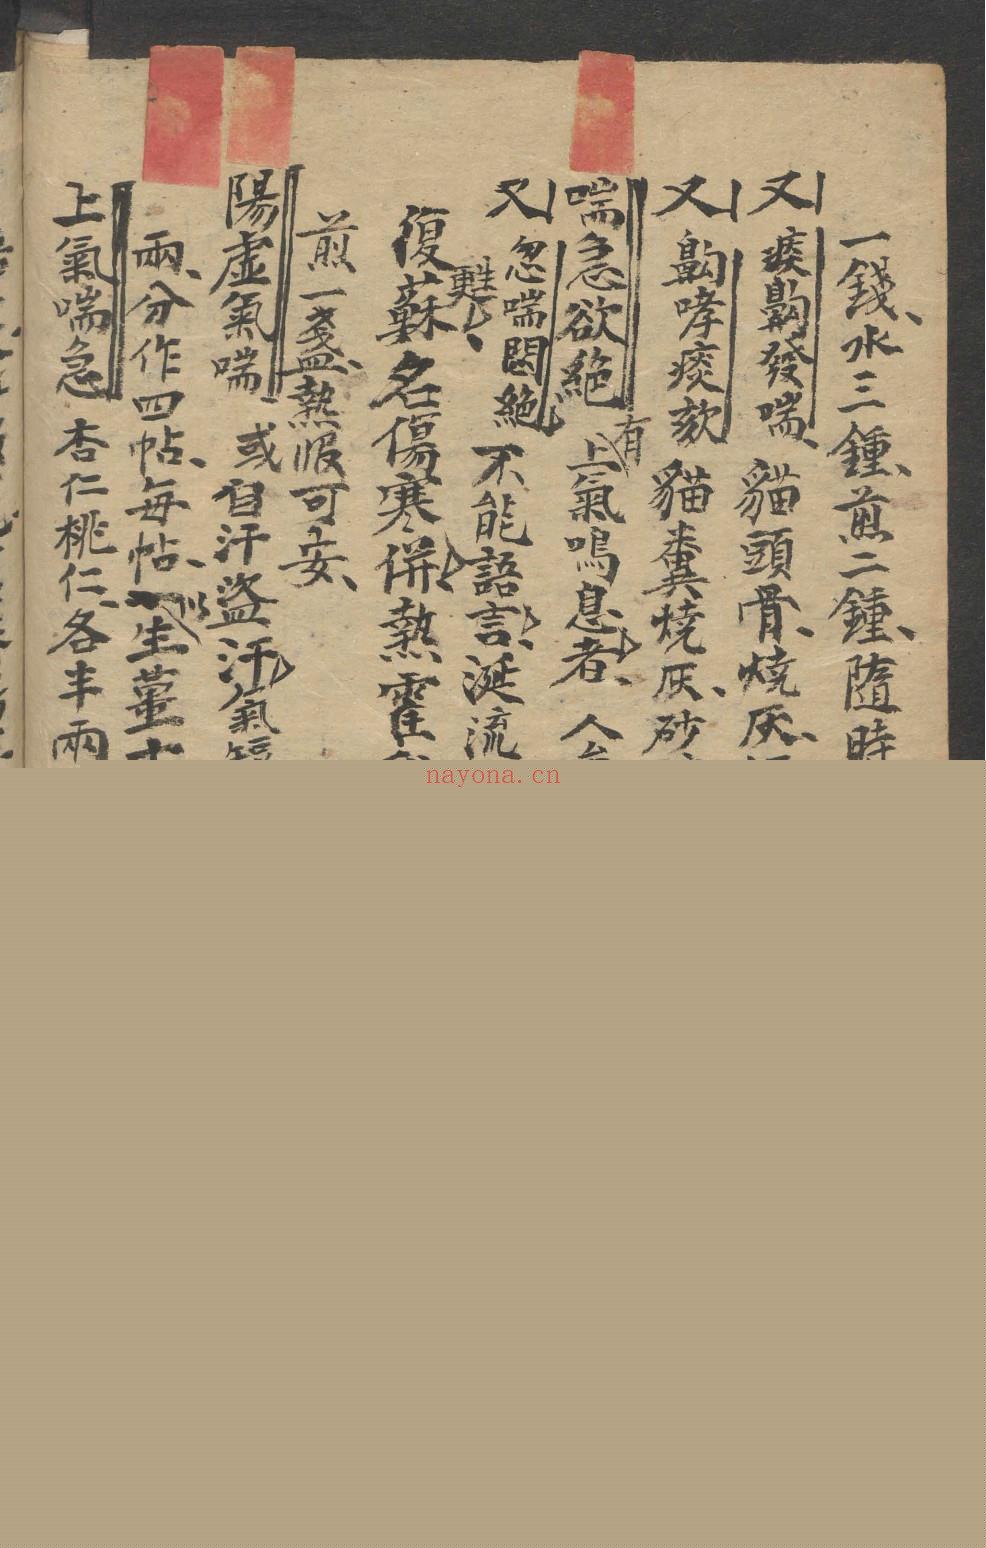 一錢、水三鍾、煎二鍾、隨時
又 痰齁發喘、貓頭骨、燒灰、
又 齁哮痰欬 貓糞燒灰、砂
喘急欲絕 上氣鳴息者、人
有
又 忽喘悶絕 不能語言、涎流
復蘇名傷寒併熱霍
甦
煎一盞、熱服可安、
陽虛氣喘 或自汗盜汗氣短
兩、分作四帖、每帖、以生薑
上氣喘急 杏仁桃仁、各半兩
nayona.cn